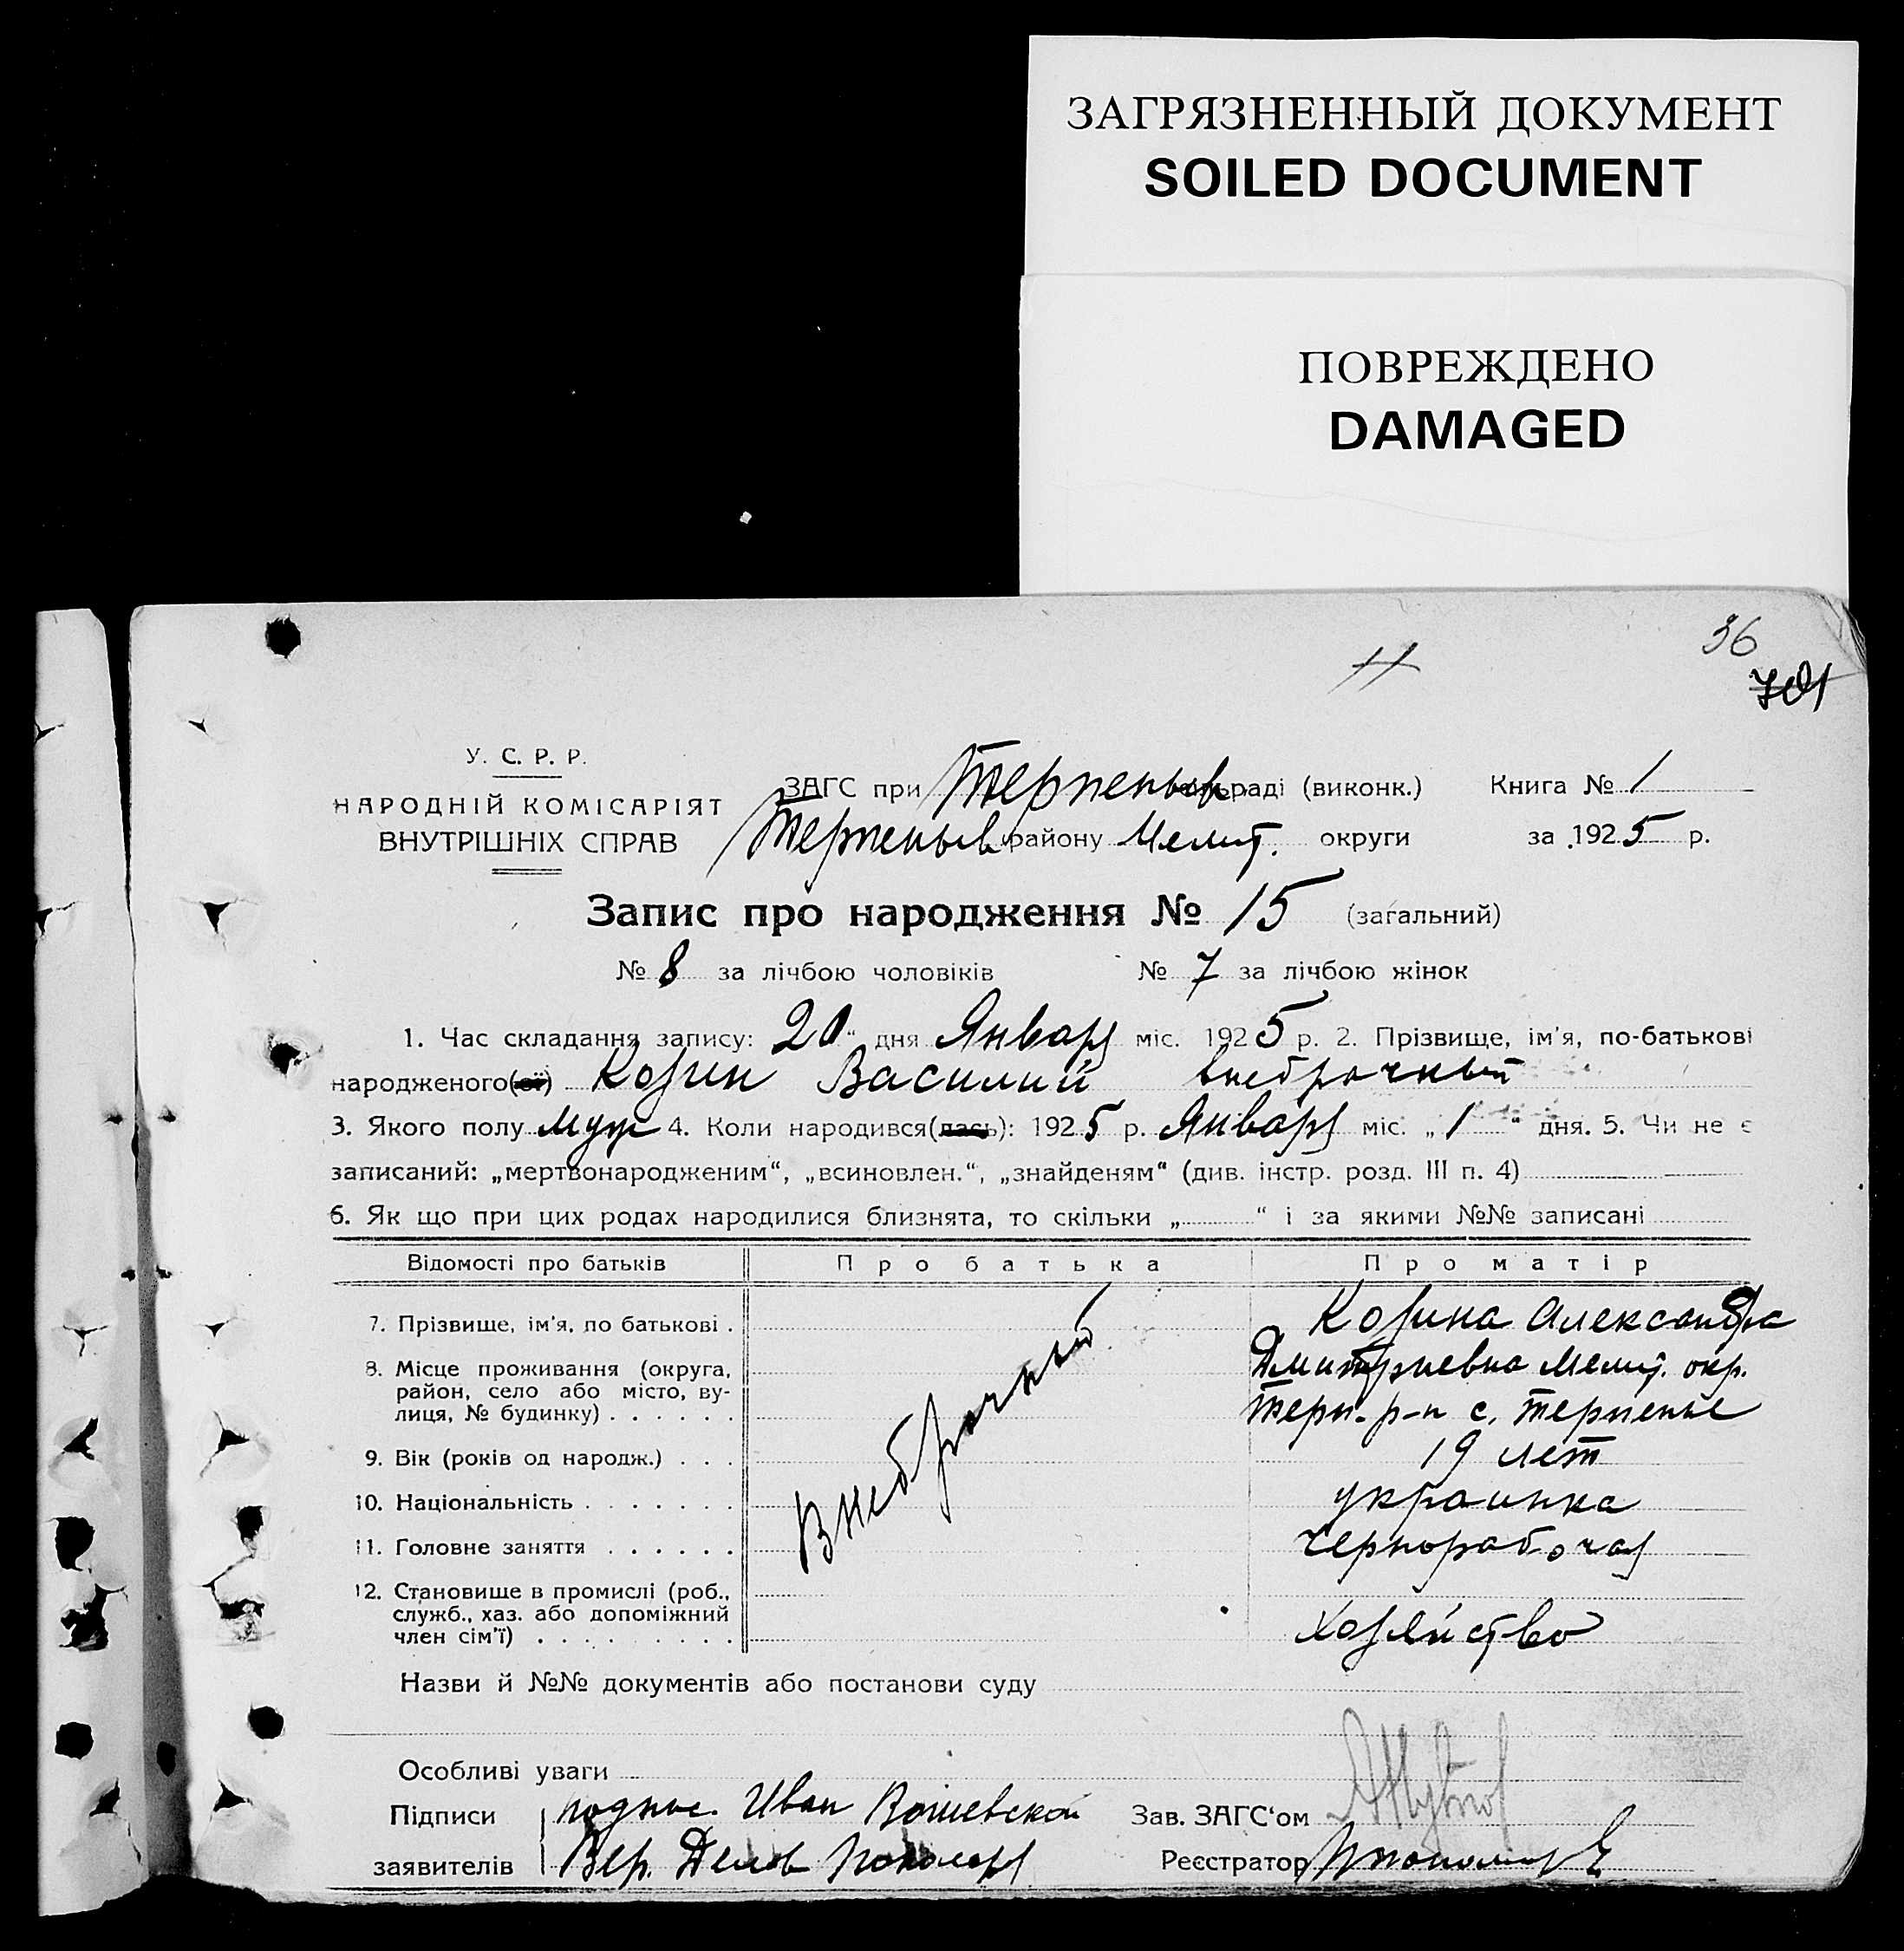 ЗАГРЯЗНЕННЫЙ ДОКУМЕНТ
SOILED DOCUMENT
ПОВРЕЖДЕНО
DAMAGED
36
701
У. С. Р. Р.
НАРОДНІЙ КОМІСАРІЯТ
ВНУТРІШНІХ СПРАВ
ЗАГС при Терпеньев раді (виконк.) Книга № 1
Терпеньев району Мелит. округи за 1925 р.
Запис про народження № 15 (загальний)
№ 8 за лічбою чоловіків № 7 за лічбою жінок
1. Час складання запису: 20 " дня Января міс. 1925 р. 2. Прізвище, ім'я, по-батькові
народженого(ої) Козин Василий внебрачный
3. Якого полу муж 4. Коли народився(лась): 1925 р. Января міс. „ 1 “ дня. 5. Чи не є
записаний: „мертвонародженим“, „всиновлен.“, „знайденям“ (див. інстр. розд. III п. 4)
6. Як що при цих родах народилися близнята, то скільки „ “ і за якими №№ записані
Відомості про батьків Про батька Про матір
7. Прізвище, ім'я, по батькові . Козина Александра
8. Місце проживання (округа, Дмитриевна Мелит. окр.
район, село або місто, ву-
лиця, № будинку) . . . . . . Терп. р-н с. Терпенье
Внебрачный
9. Вік (років од народж.) . . . 19 лет
10. Національність . . . . . . . украинка
11. Головне заняття . . . . . . чернорабочая
12. Становище в промислі (роб.,
служб., хаз. або допоміжний
член сім'ї) . . . . . . . . . Хозяйство
Назви й №№ документів або постанови суду
Особливі уваги
Підписи Иван Зав. ЗАГС‘ом
заявителів Вер. Делов Реєстратор